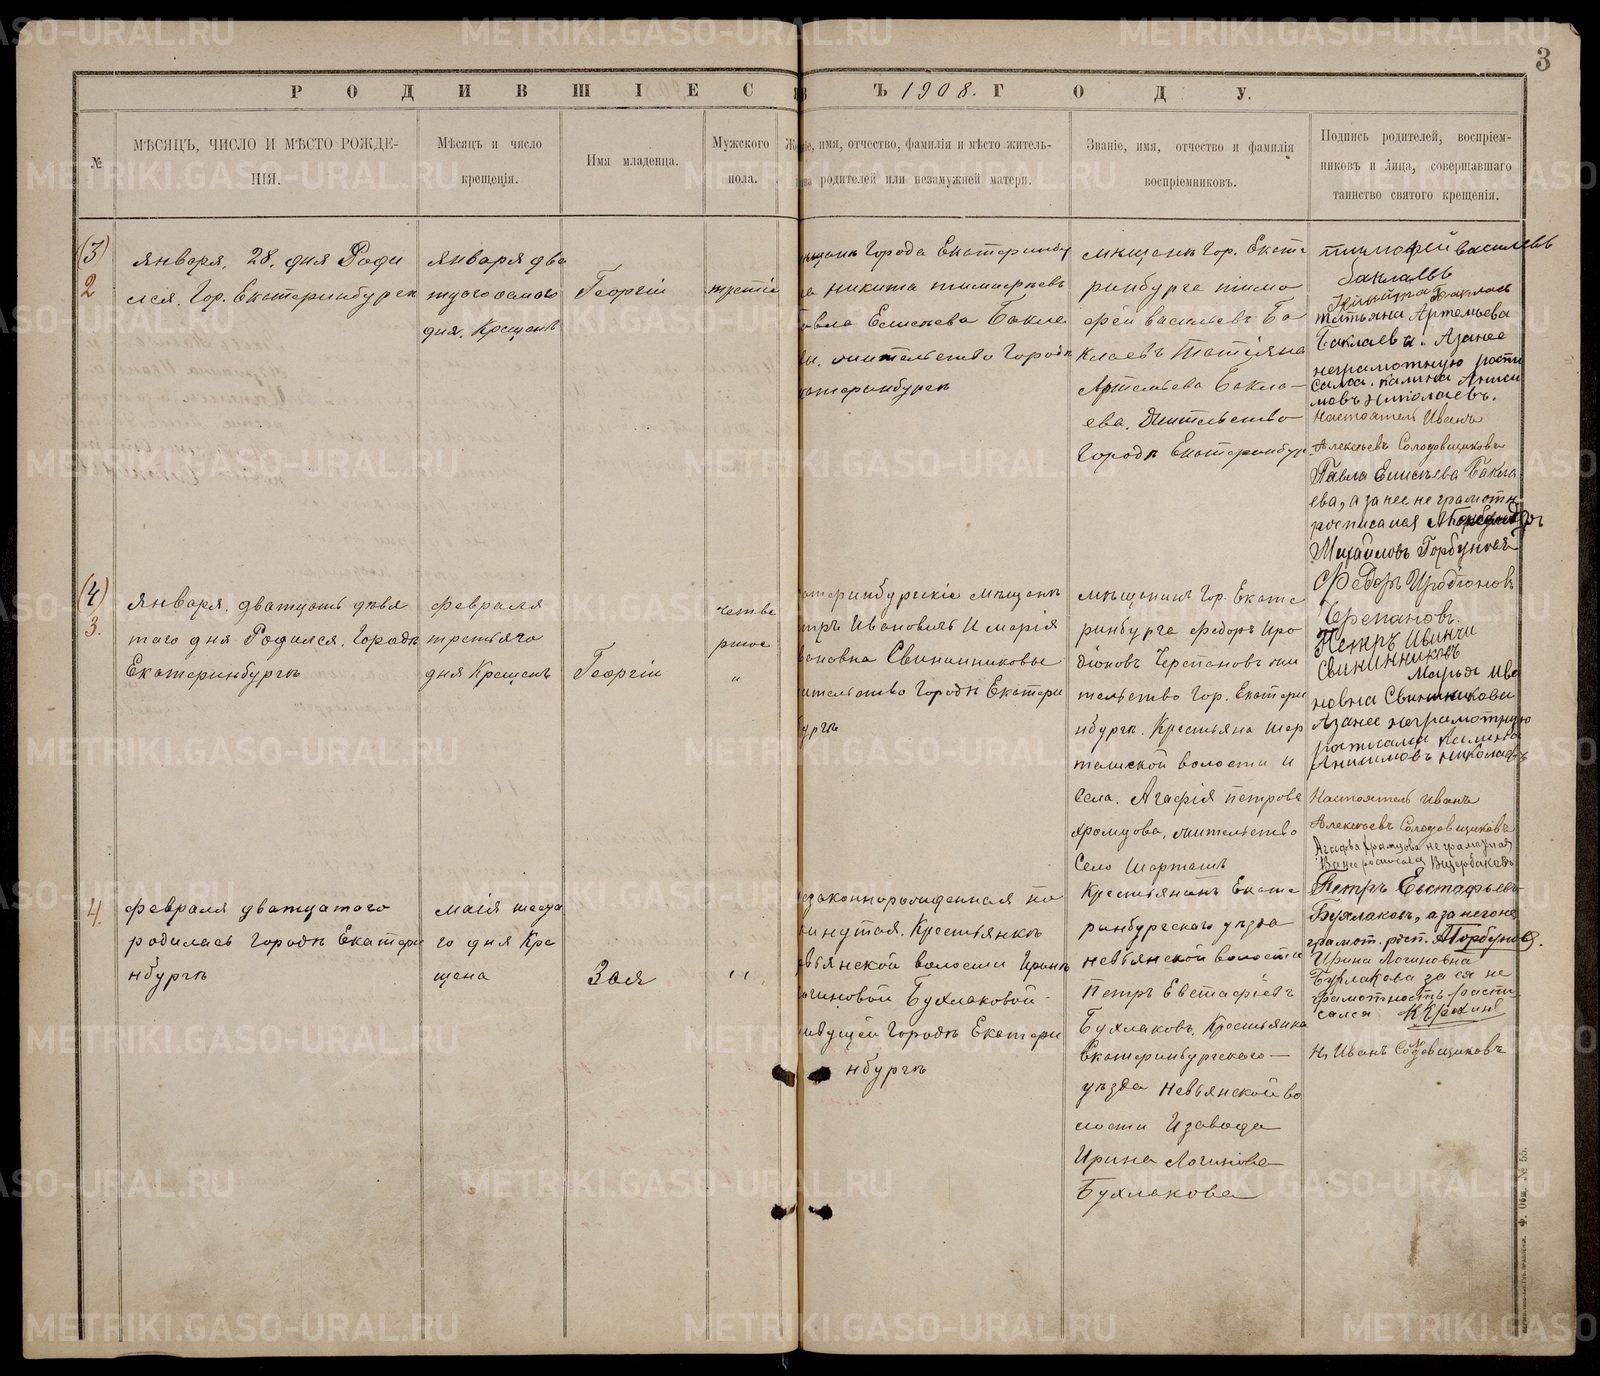 3
РОДИВШІЕСЯ ВЪ 1908. ГОДУ.
№
МѢСЯЦЪ, ЧИСЛО И МѢСТО РОЖДЕ-
НІЯ.
Мѣсяцъ и число
крещенія.
Имя младенца.
Мужского
пола.
имя, отчество, фамилія и мѣсто житель-
родителей или незамужней матери.
Званіе, имя, отчество и фамилія
воспріемниковъ.
Подпись родителей, воспріем-
никовъ и лица, совершавшаго
таинство святого крещенія.
(3)
2
января. 28. дня Роди
лся. Гор. Екатеринбургѣ
января два
тцатого осмаго
дня. Крещенъ
Георгіи
третіе
Города Екатеринбу
Никита тимофѣевъ
Елисѣева Бакла
жительство Городѣ
катеринбургѣ
мѣщенн Гор. Екате
ринбурге тимо
фѣй васильевъ Ба
клаевъ Татіяна
Артемьева Бакла-
ева. Жительство
Городѣ Екатеринбур
тимофей василевъ
баклаевъ
Никита Баклаевъ
татьяна Артемьева
Баклаева. Азанее
неграмотную роспи
сался. калина Аниси
мовъ николаевъ.
Настоятель Иванъ
Алексѣевъ Солодовщиковъ
Павла Елисѣева Бакла
ева, а за нее не грамотн
росписался
Михайловъ Горбуновъ
(4)
3.
января. дватцать девя
таго дня Родился. Городѣ
Екатеринбургѣ
февраля
третьяго
дня Крещенъ
Георгіи
четве
ртое
"
атеринбургскіе мѣщене
тръ Ивановичъ И марія
вановна Свининниковы
ительство Городѣ Екатери
бургѣ
мѣщенинъ Гор. Екате
ринбурге федоръ иро
діоновъ Черепановъ жи
тельство Гор. Екатери
нбургѣ. Крестьяна шар
ташской волости и
села. Агафія петрова
храмцова, жительство
Село шарташъ
Федоръ Иродіоновъ
Черепановъ.
Петръ Ивинчи
Свининниковъ
Марья Ива
новна Свининикова
Азанее неграмотную
росписался калина
Анисимовъ николаевъ
Настоятель иванъ
Алексѣевъ Солодовщиковъ
Агафья Храмцова неграмотная
4.
февраля дватцатого
родилась городѣ Екатери
нбургѣ
маія шеста
го дня Кре
щена
Зоя
"
езаконнорожденная по
кинутая. Крестьянкѣ
вьянской волости Иринѣ
огиновой Бухлаковой-
ивущей городѣ Екатери
нбургѣ
Крестьянинъ Екате
ринбургскаго уѣзда
невьянской волости
Петръ Евстафіевъ
Бухлаковъ. Крестьянка
Екатеринбургскаго-
уѣзда невьянской во
лости И завода
Ирина Логинова-
Бухлакова
Петръ Евстафьевъ
Бухлаковъ, а за негоне
грамот. росп. АГорбуновъ.
Ирина Логиновна
Бухлакова за ея не
грамотность распи-
сался
Н, Иванъ Солодовщиковъ